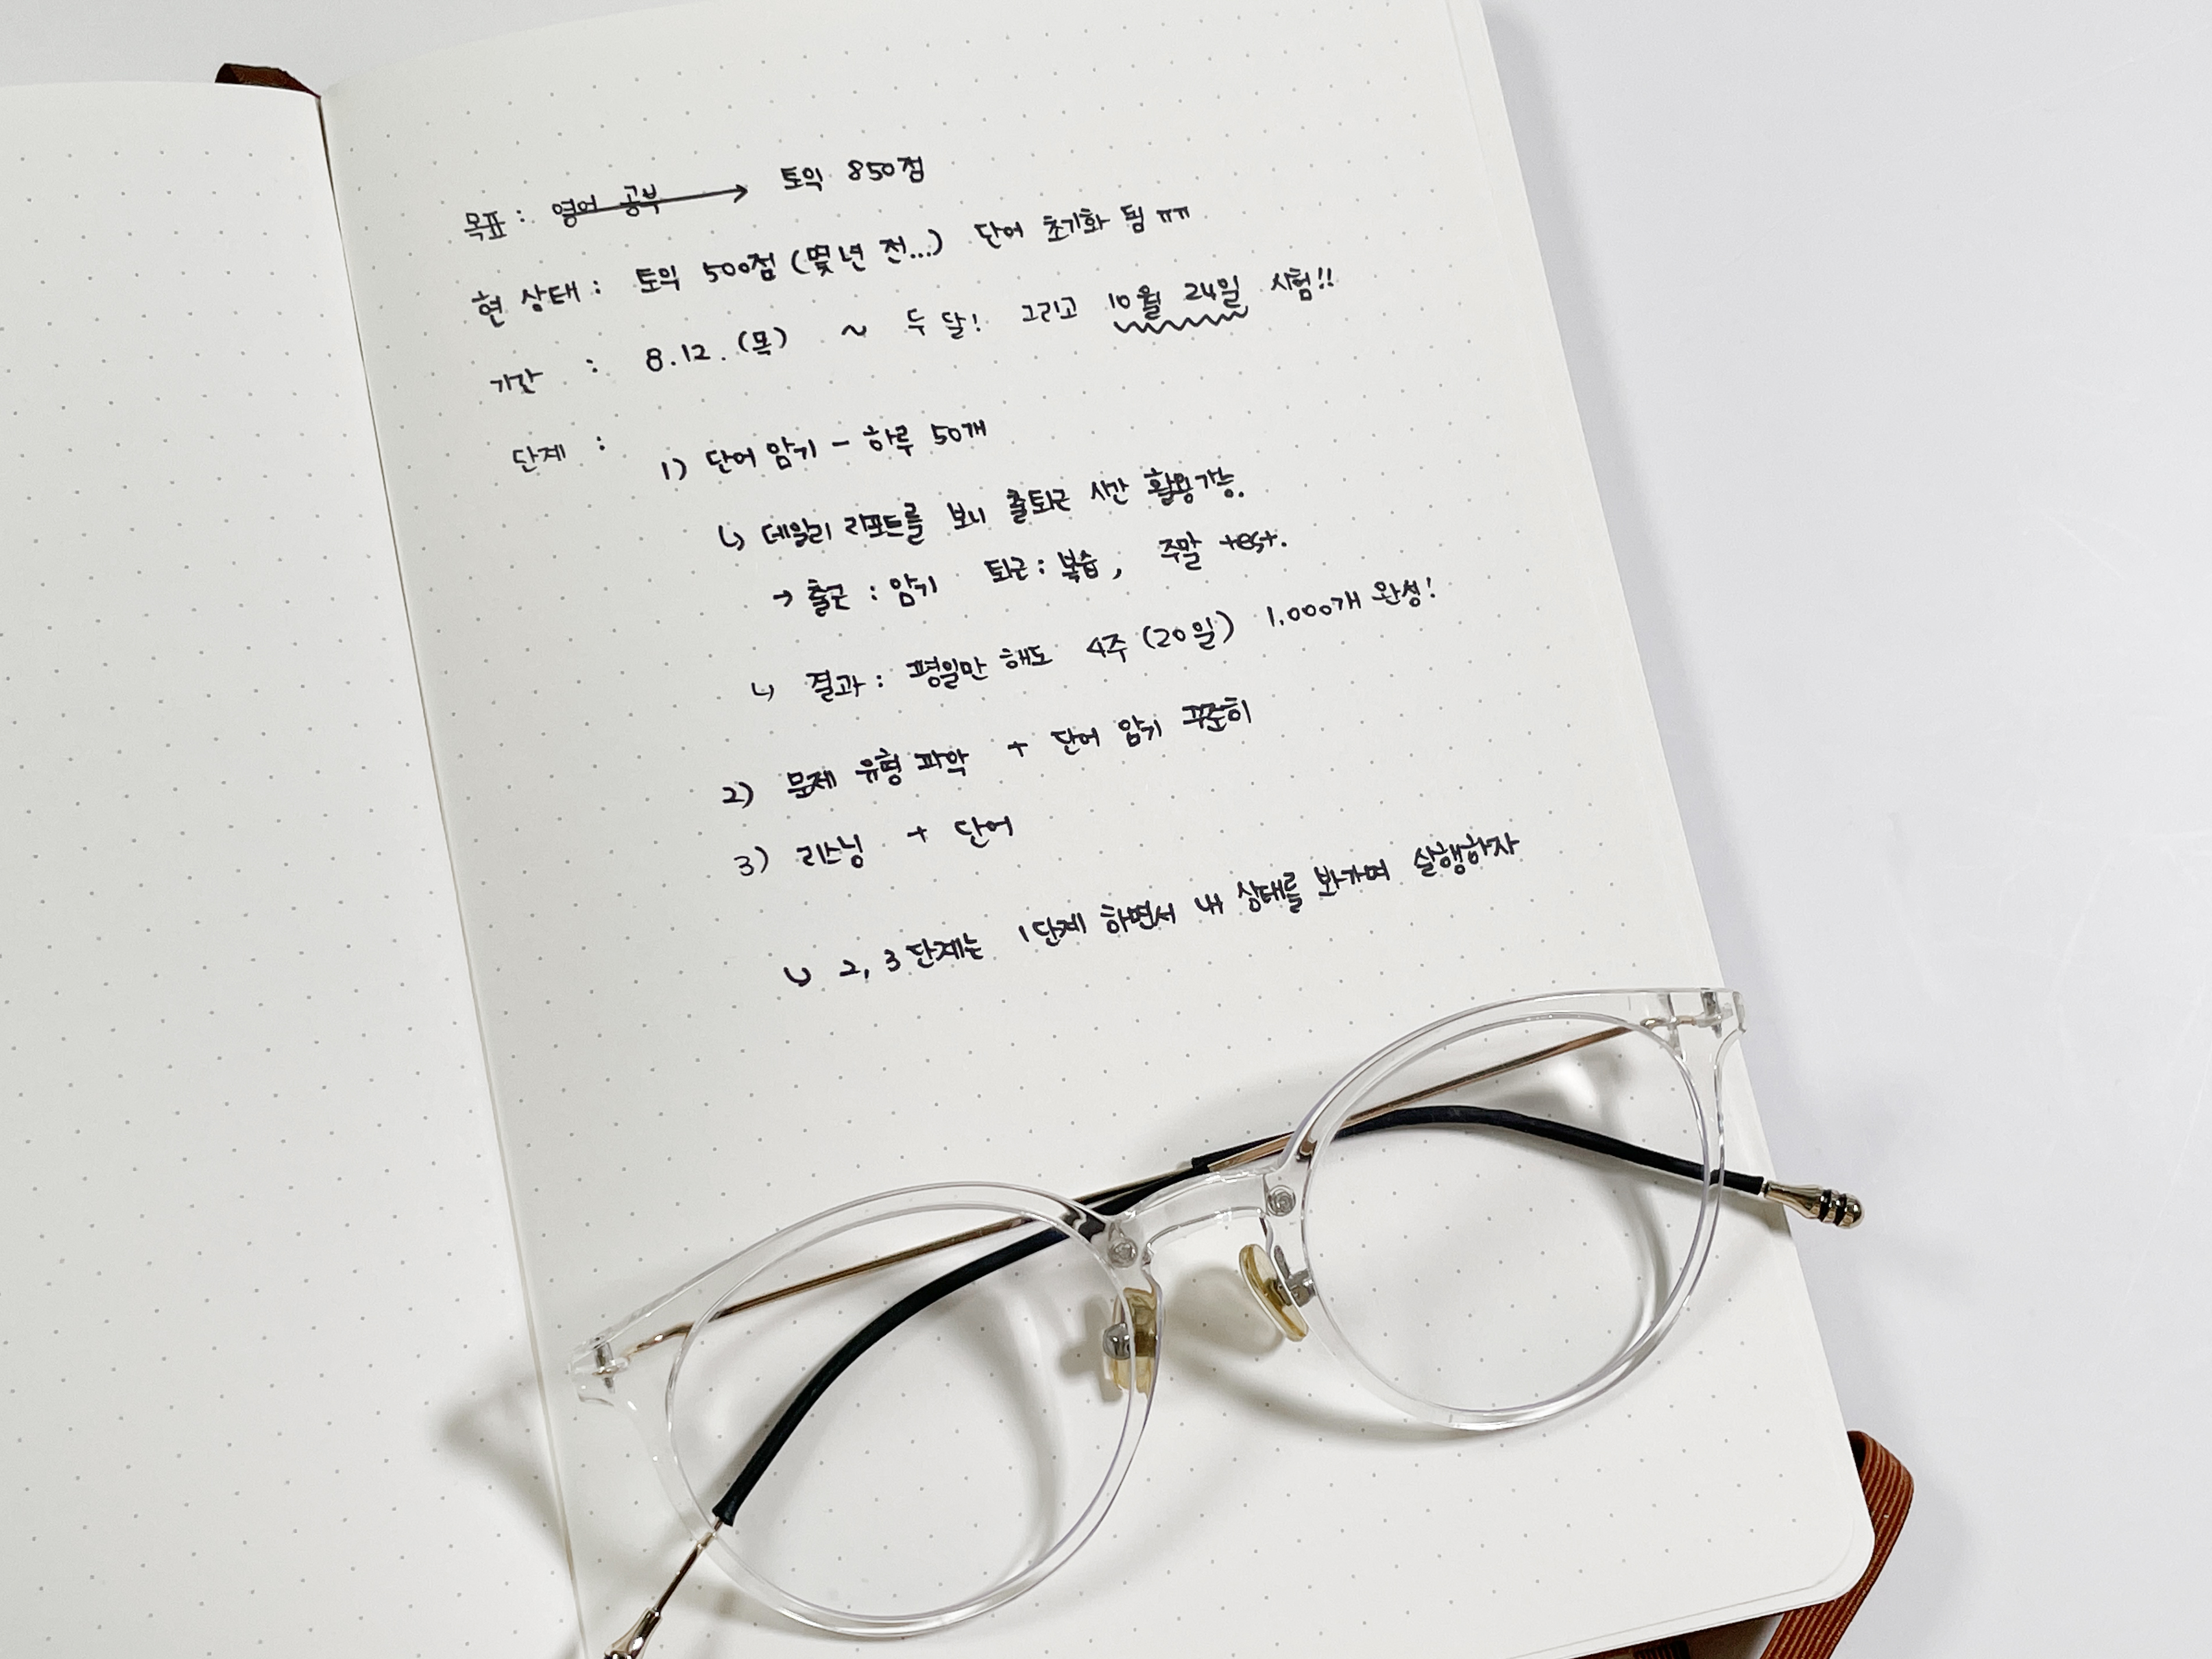 목표 : 영어 공부 → 토익 850점
현 상태 : 토익 500점 (몇 년 전...) 단어 초기화 됨 ㅠㅠ
기간 : 8.12. (목) ~ 두 달! 그리고 10월 24일 시험!!
단계 : 1) 단어 암기 - 하루 50개
↳ 데일리 리포트를 보니 출퇴근 시간 활용가능.
→ 출근 : 암기 퇴근 : 복습, 주말 test.
↳ 결과 : 평일만 해도 4주 (20일) 1.000개 완성!
2) 문제 유형 파악 + 단어 암기 꾸준히
3) 리스닝 + 단어
↳ 2, 3단계는 1단계 하면서 내 상태를 봐가며 실행하자